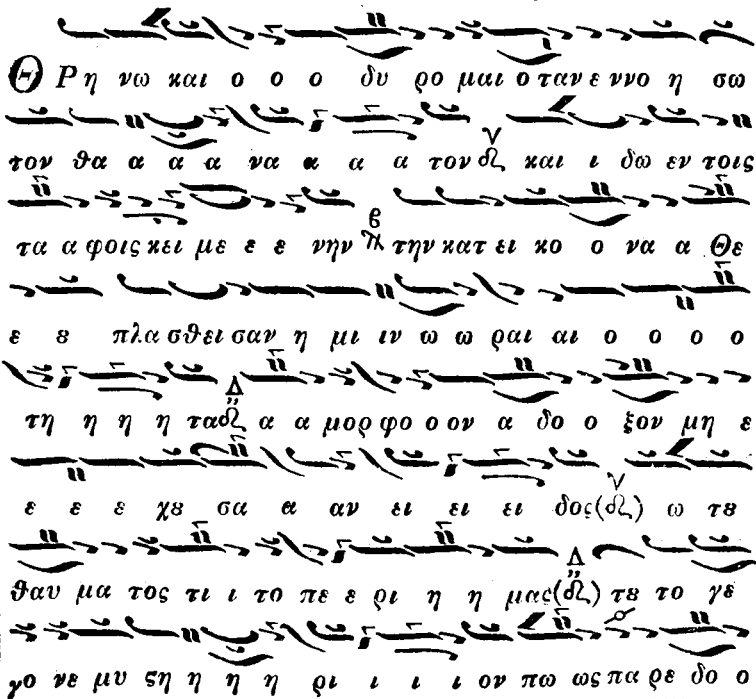 Θ Ρ η νω και ο ο ο δυ ρο μαι ο ταν ε ννο η σω
τον θα α α α να α α α τον και ι δω εν τοις
τα α φοις κει με ε ε νην την κατ ει κο ο να α Θε
ε ȣ πλα σθει σαν η μι ιν ω ω ραι αι ο ο ο ο
τη η η η τα α α μορ φο ο ον α δο ο ξον μη ε
ε ε ε χȣ σα α αν ει ει ει δος ω τȣ
θαυ μα τος τι ι το πε ε ρι η η μας τȣ το γε
γο νε μυ ϛη η η η ρι ι ι ι ον πω ως πα ρε δο ο